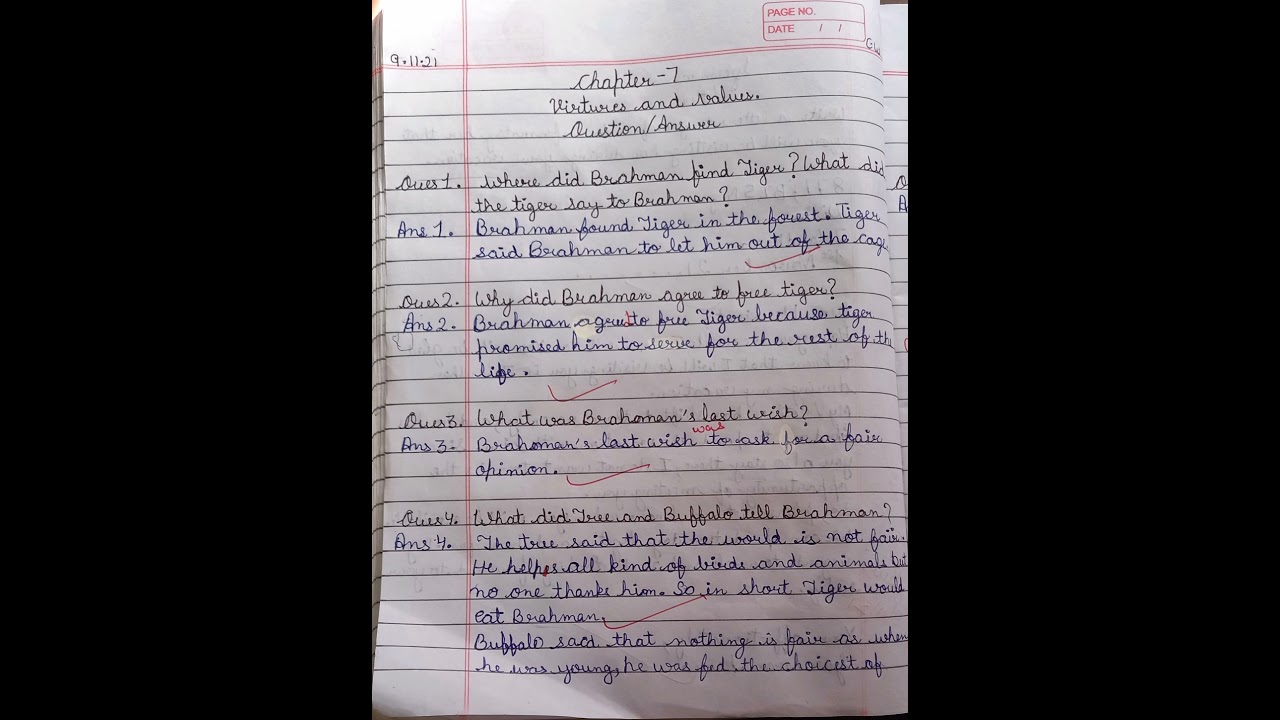 PAGE NO.
DATE / /
9.11.21
Chapter-7
Virtures and values.
Question/Answer
Ques 1. Where did Brahman find Tiger? What did
the tiger say to Brahman?
Ans 1. Brahman found Tiger in the forest. Tiger
said Brahman to let him out of the cage
Ques 2. Why did Brahman agree to free tiger?
Ans 2. Brahman agreed to free Tiger because tiger
promised him to serve for the rest of the
life.
Ques 3. What was Brahoman's last wish?
was
Ans 3- Brahoman's last wish to ask for a fair
opinion.
Ques 4. What did Tree and Buffalo tell Brahman?
Ans 4. The tree said that the world is not fair.
He helps all kind of birds and animals but
no one thanks him. So in short Tiger would
eat Brahman.
Buffalo said that nothing is fair as when
he was young, he was fed the choicest of